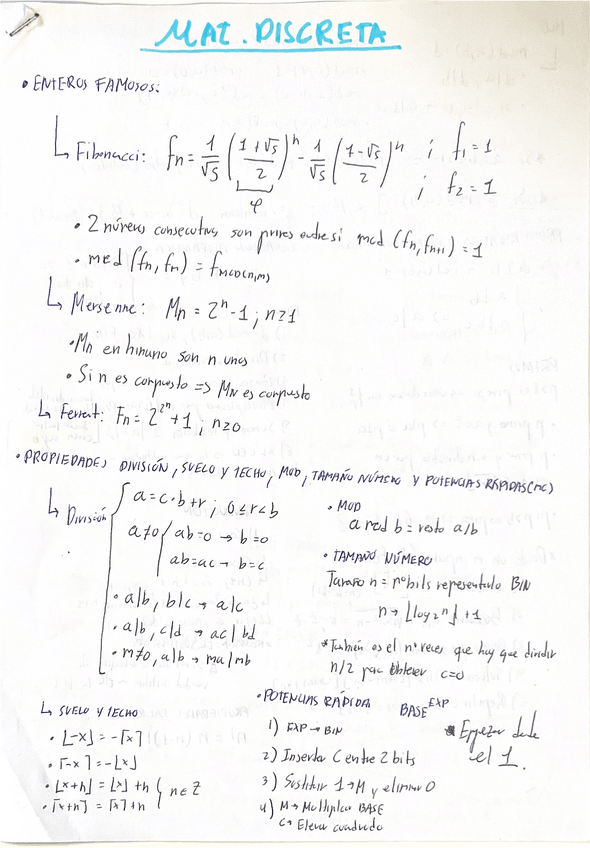 MAT. DISCRETA
• ENTEROS FAMOSOS:
↳ Fibonacci: fn = 1/√5 ((1+√5)/2)^n - 1/√5 ((1-√5)/2)^n ; f1 = 1
; f2 = 1
φ
• 2 números consecutivos son primos entre si mcd (fn, fn+1) = 1
• mcd (fn, fm) = fMCD(n,m)
↳ Mersenne: Mn = 2^n - 1 ; n≥1
• Mn en binario son n unos
• Si n es compuesto => Mn es compuesto
↳ Fermat: Fn = 2^2^n + 1 ; n≥0
• PROPIEDADES DIVISIÓN, SUELO Y TECHO, MOD, TAMAÑO NÚMERO Y POTENCIAS RÁPIDAS (MC)
↳ División
a = c·b + r ; 0≤r<b
a≠0
ab=0 → b=0
ab=ac → b=c
• a|b, b|c → a|c
• a|b, c|d → ac|bd
• m≠0, a|b → ma|mb
• MOD
a mod b = resto a/b
• TAMAÑO NÚMERO
Tamaño n = nº bits representarlo BIN
n → ⌊log2 n⌋ + 1
*También es el nº veces que hay que dividir
n/2 para obtener c=0
↳ SUELO Y TECHO
• ⌊-x⌋ = -⌈x⌉
• ⌈-x⌉ = -⌊x⌋
• ⌊x+n⌋ = ⌊x⌋ + n
• ⌈x+n⌉ = ⌈x⌉ + n
n∈Z
• POTENCIAS RÁPIDA BASE^EXP
1) EXP → BIN
2) Insertar C entre 2 bits
3) Sustituir 1→M y eliminar 0
4) M → Multiplicar BASE
C → Elevar cuadrado
* Empezar desde
el 1.